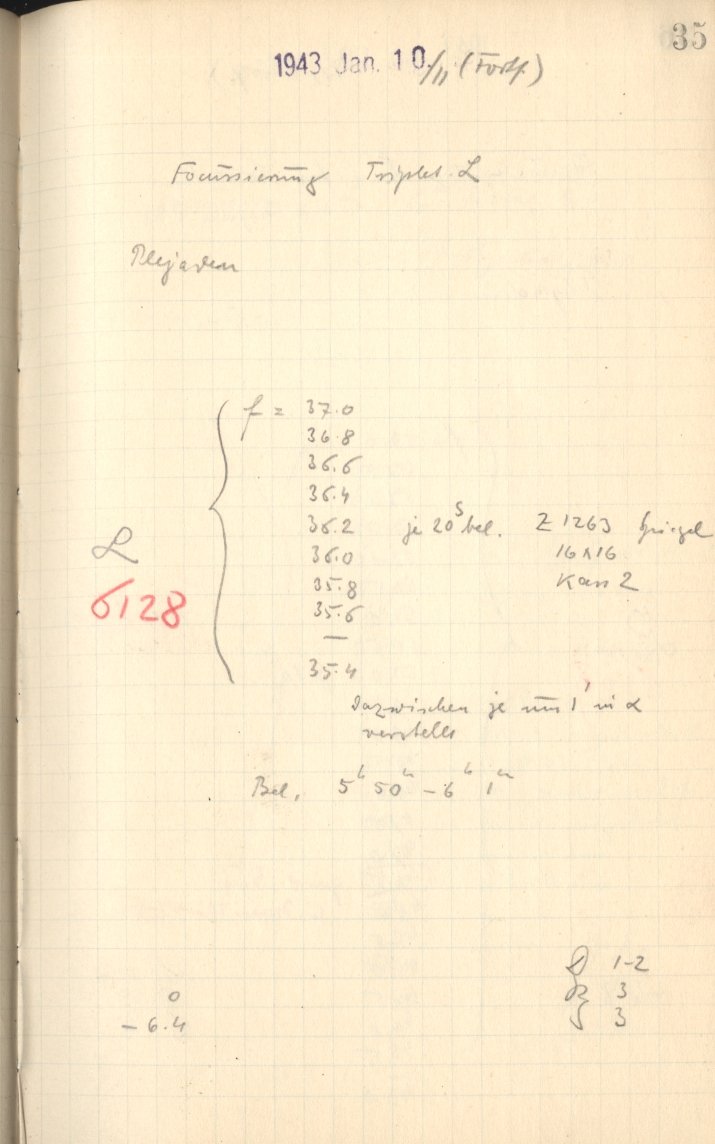 35
1943 Jan. 10./11 (Forts.)
Focussierung Triplet L
Plejaden
f = 37.0
36.8
36.6
36.4
36.2 je 20s bel. Z 1263 Spiegel
36.0 16x16
35.8 Kass 2
35.6
—
35.4
L
6128
Dazwischen je um 1' in α
verstellt
Bel. 5h 50m – 6h 1m
D 1-2
R 3
S 3
0
- 6.4